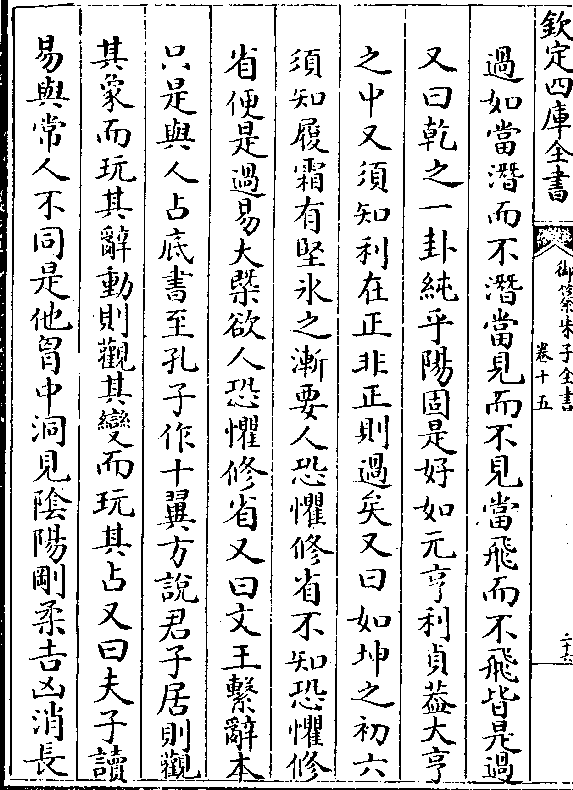 欽定四庫全書
御纂朱子全書
卷十五
二十六
過如當潛而不潛當見而不見當飛而不飛皆是過
又曰乾之一卦純乎陽固是好如元亨利貞葢大亨
之中又須知利在正非正則過矣又曰如坤之初六
須知履霜有堅氷之漸要人恐懼修省不知恐懼修
省便是過易大槩欲人恐懼修省又曰文王繫辭本
只是與人占底書至孔子作十翼方說君子居則觀
其象而玩其辭動則觀其變而玩其占又曰夫子讀
易與常人不同是他胷中洞見陰陽剛柔吉凶消長